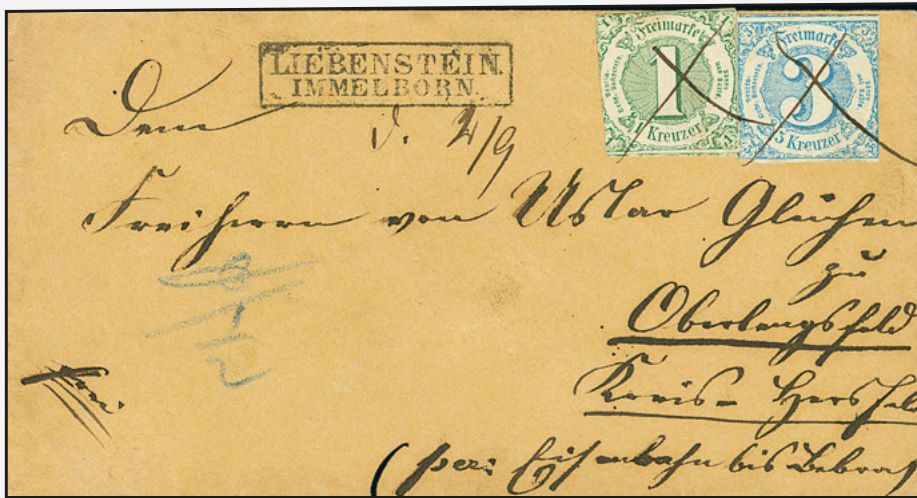 LIEBENSTEIN.
IMMELBORN.
Freimarke
1
1 Kreuzer
Freimarke
3
3 Kreuzer
Dem
d. 4/9
Freiherrn von Uslar Gleichen
zu
Oberlengsfeld
Kreis- Hersfeld
frei
(per: Eisenbahn bis Bebra